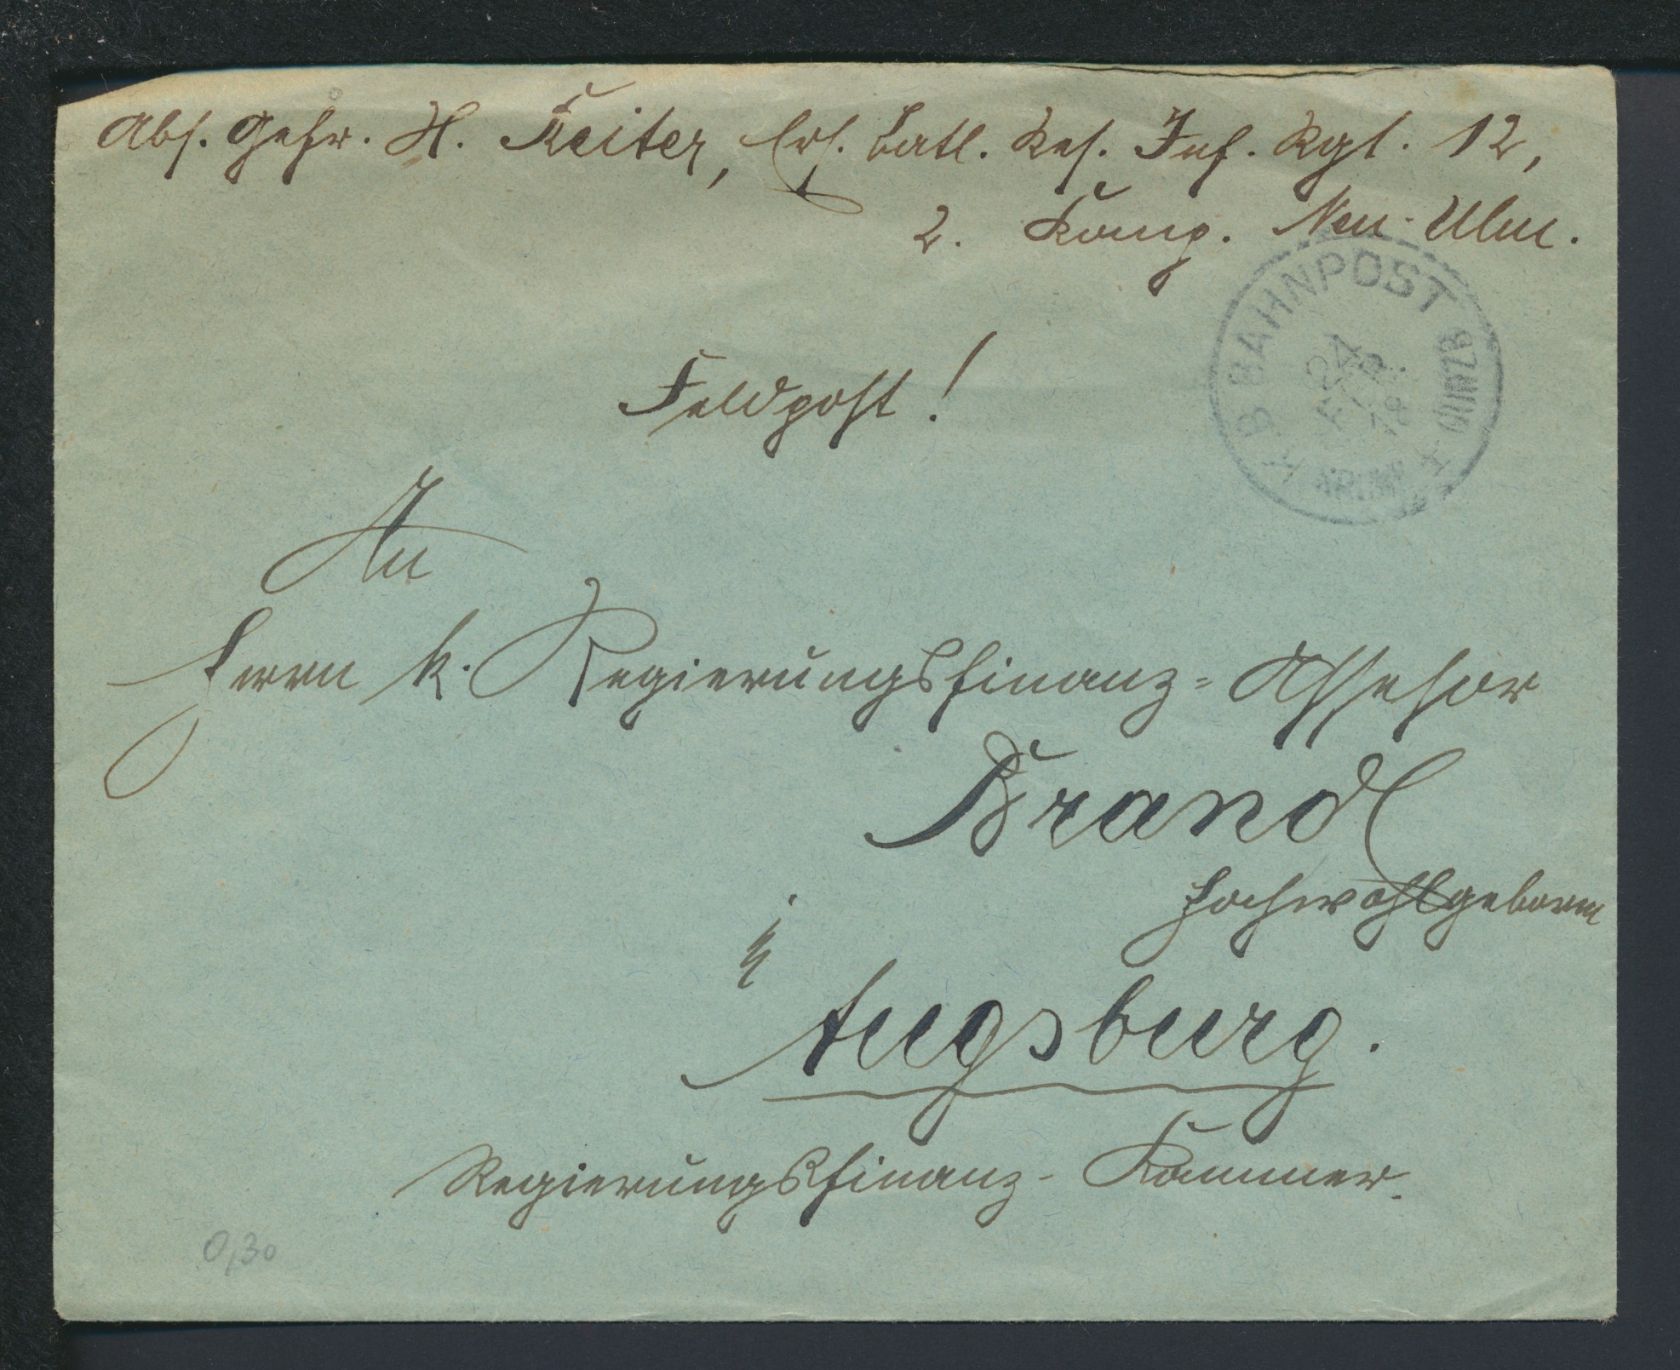 Abs. Gefr. H. Reiter, Ers. Batl. Res. Inf. Rgt. 12,
2. Komp. Neu-Ulm.
K B BAHNPOST
24
Feldpost!
An
Herrn k. Regierungsfinanz-Assessor
Brandl
Hochwohlgeboren
in
Augsburg.
Regierungsfinanz-Kammer.
0,30